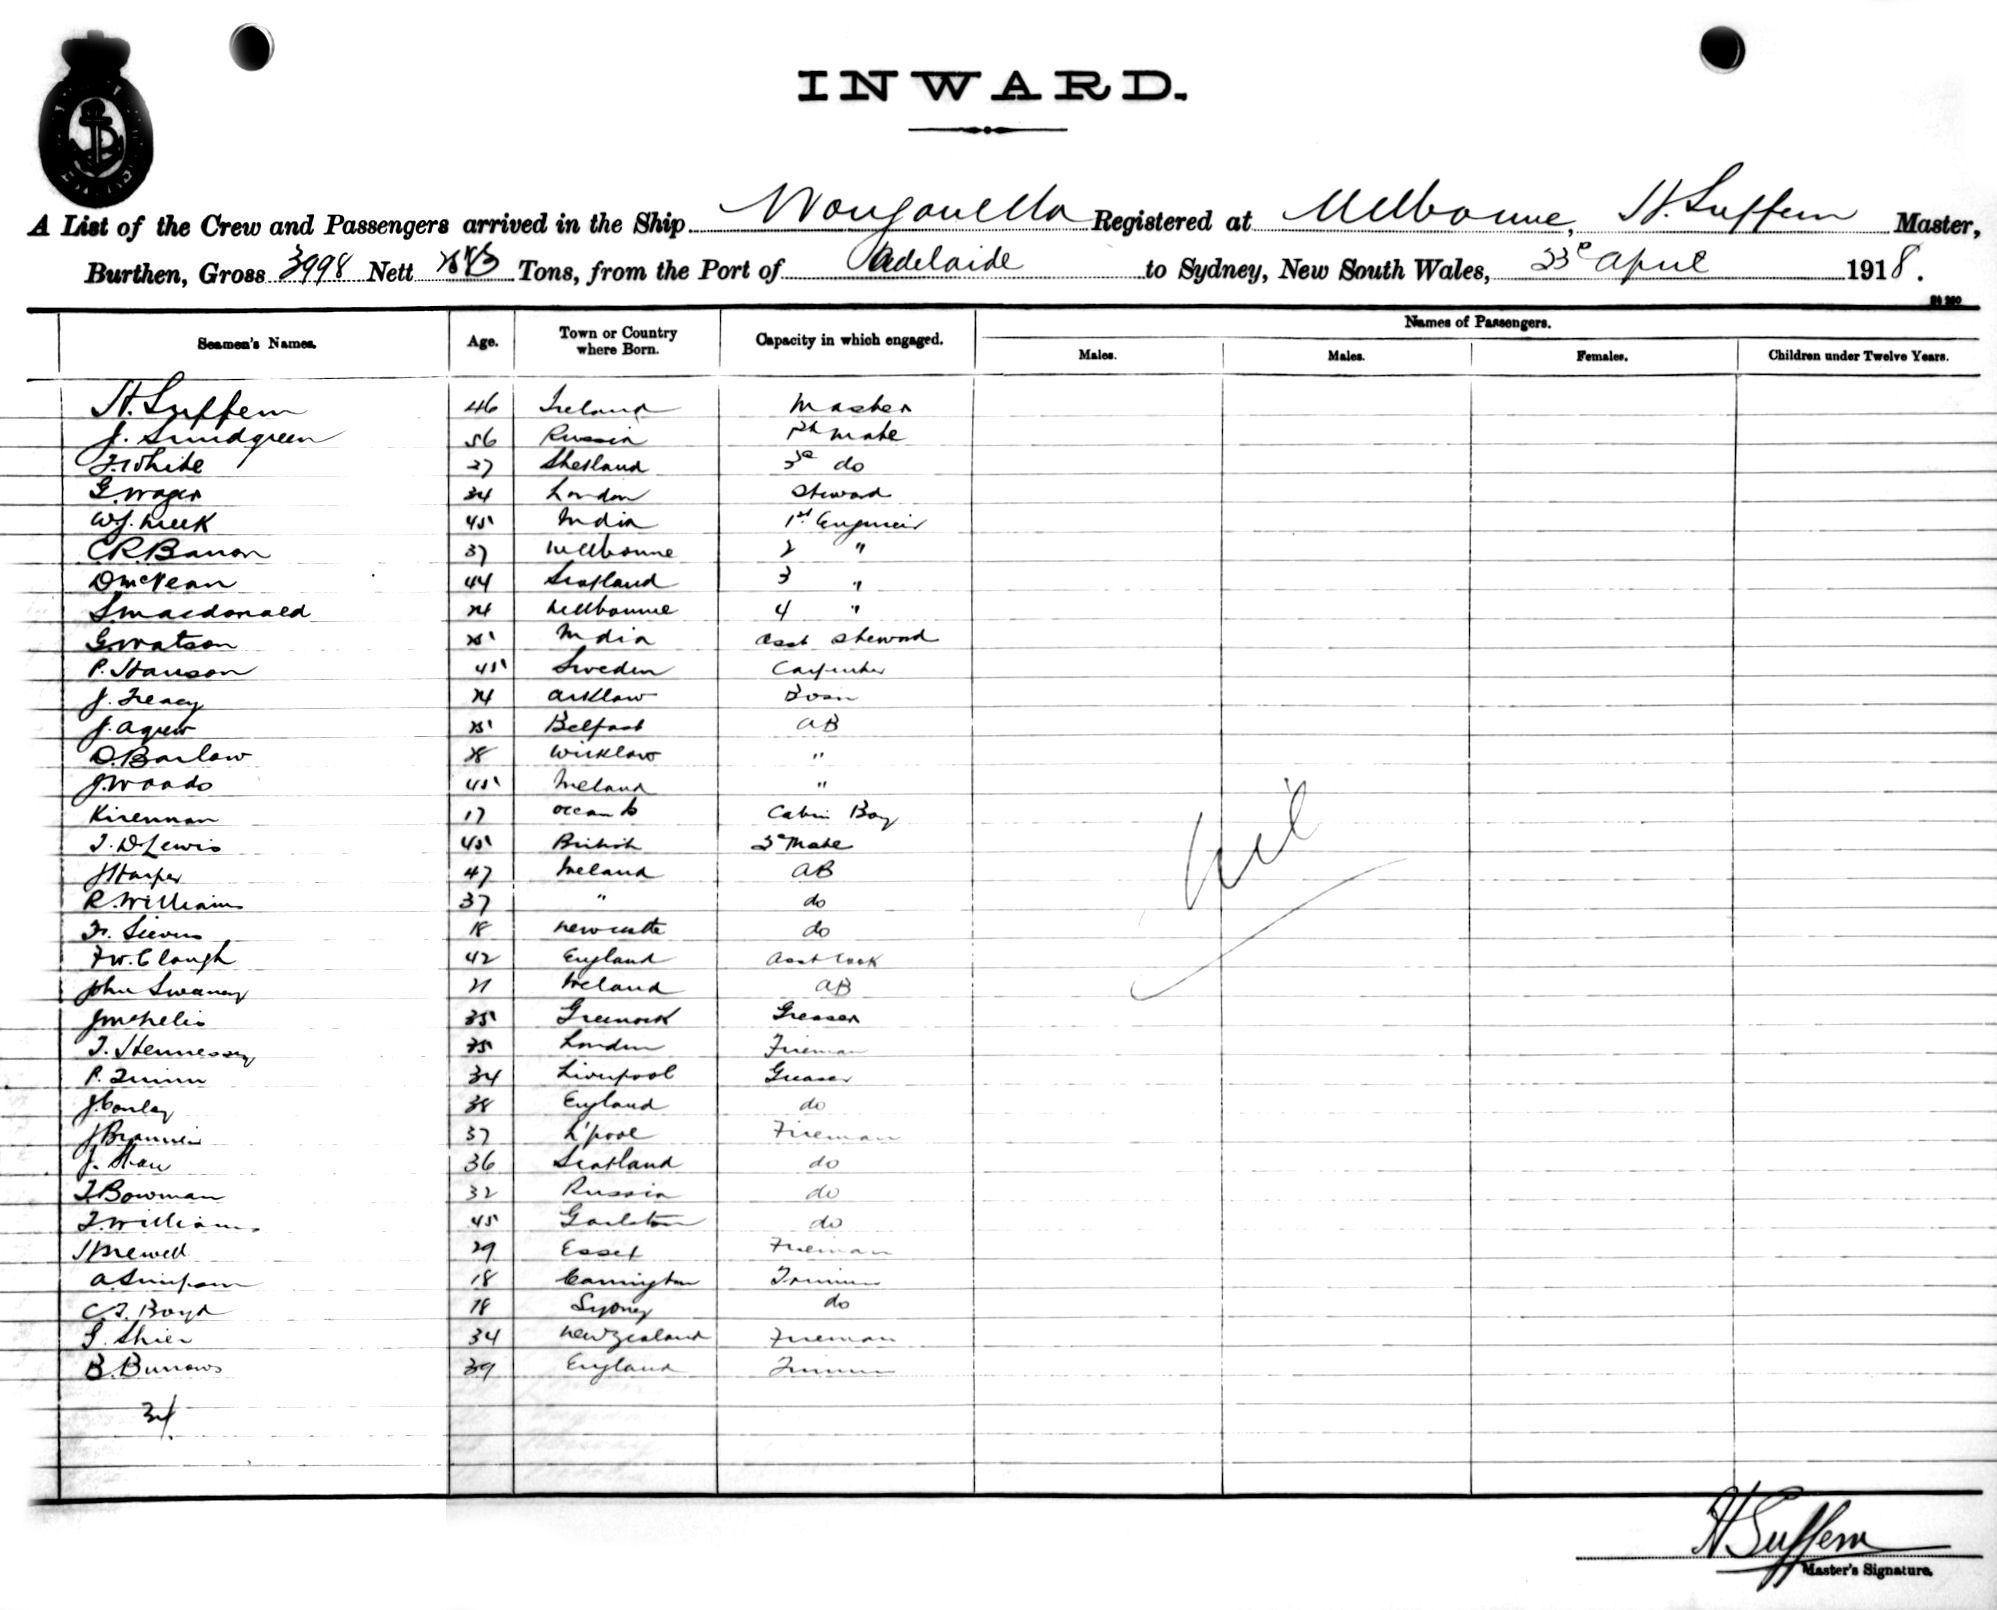 INWARD.
A List of the Crew and Passengers arrived in the Ship Wonganella Registered at Melbourne, H. Suffern Master,
Burthen, Gross 3998 Nett Tons, from the Port of Adelaide to Sydney, New South Wales, 23d April 1918.
Names of Passengers.
Seamen's Names. Age. Town or Country where Born. Capacity in which engaged. Males. Males. Females. Children under Twelve Years.
H. Suffern 46 Ireland Master
J. Sundgreen 56 Russia mate
J. White 37 Shetland 3d do
G. Wager 34 London Steward
W.J. Meek 45 India 1st Engineer
C.R. Barron 37 Melbourne 2 "
D McVean 44 Scotland 3 "
S. Macdonald 24 Melbourne 4 "
G. Watson 25 India Asst Steward
P. Hanson 45 Sweden Carpenter
J. Treacy 24 Arklow Bosn
J. Agnew 25 Belfast AB
D. Barlow 28 Wicklow "
J. Woods 45 Ireland "
Kirennan 17 Ocean Is Cabin Boy
T. D Lewis 45 British 2d Mate
J Harper 47 Ireland AB
R. Williams 37 " do
Fr. Sievers 18 Newcastle do
F W. Clough 42 England Asst Cook
John Swaney 21 Ireland AB
35 Greenock Greaser
T. Hennessy 35 London Fireman
P. Quinn 34 Liverpool Greaser
J. Conley 38 England do
J 37 L'pool Fireman
J. 36 Scotland do
J. Bowman 32 Russia do
T. Williams 45 Gorleston do
29 Essex Fireman
A. Simpson 18 Trimmer
C.J. Boyd 18 Sydney do
34 New Zealand Fireman
B. Burrows 39 England Trimmer
34
Nil
H Suffern
Master's Signature.